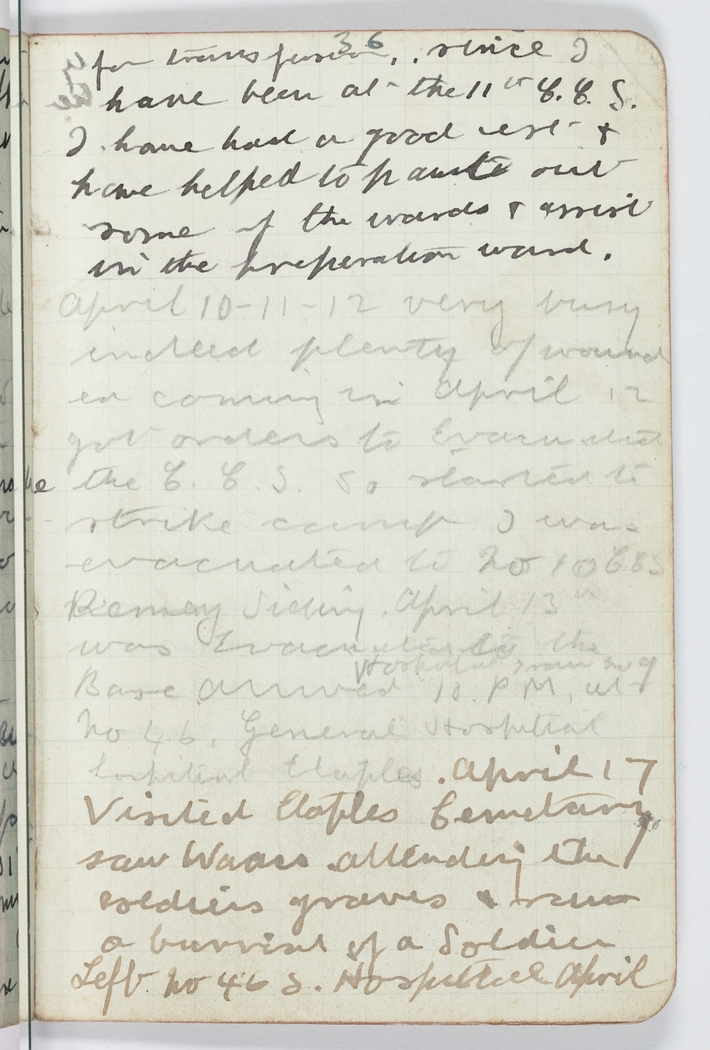 36
for transfusion, . since I
have been at the 11th C. C. S.
I have had a good rest &
have helped to paint out
some of the wards & assist
in the preperation ward.
April 10-11-12 very busy
indeed plenty of wound
ed coming in April 12
got orders to Evacuate
the C. C. S. So started to
strike camp I was
evacuated to No 10 C.C.S
Remey Siding. April 13th
was Evacuated to the
Hospital train no 9
Base arrived 10. P M, at
No 46. General Hospital
hospital Etaples. April 17
Visited Etaples Cemetary
saw Waacs attending the
soldiers graves & saw
a burrial of a Soldier
Left No 46 S. Hospital April